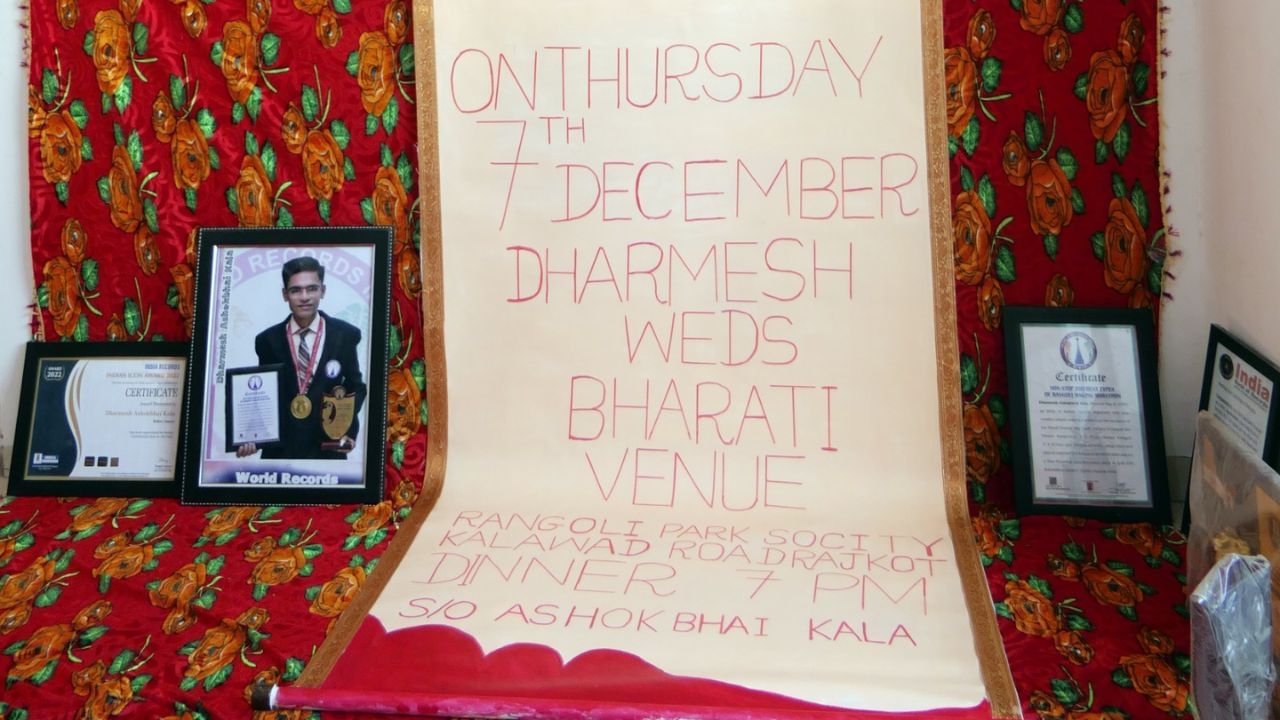 ON THURSDAY
7TH
DECEMBER
DHARMESH
WEDS
BHARATI
VENUE
RANGOLI PARK SOCITY
KALAWAD ROAD RAJKOT
DINNER 7 PM
S/O ASHOKBHAI KALA
AWARD
2022
CERTIFICATE
Dharmesh Ashokbhai Kala
O RECORDS
Dharmesh Ashokbhai Kala
World Records
Certificate
India